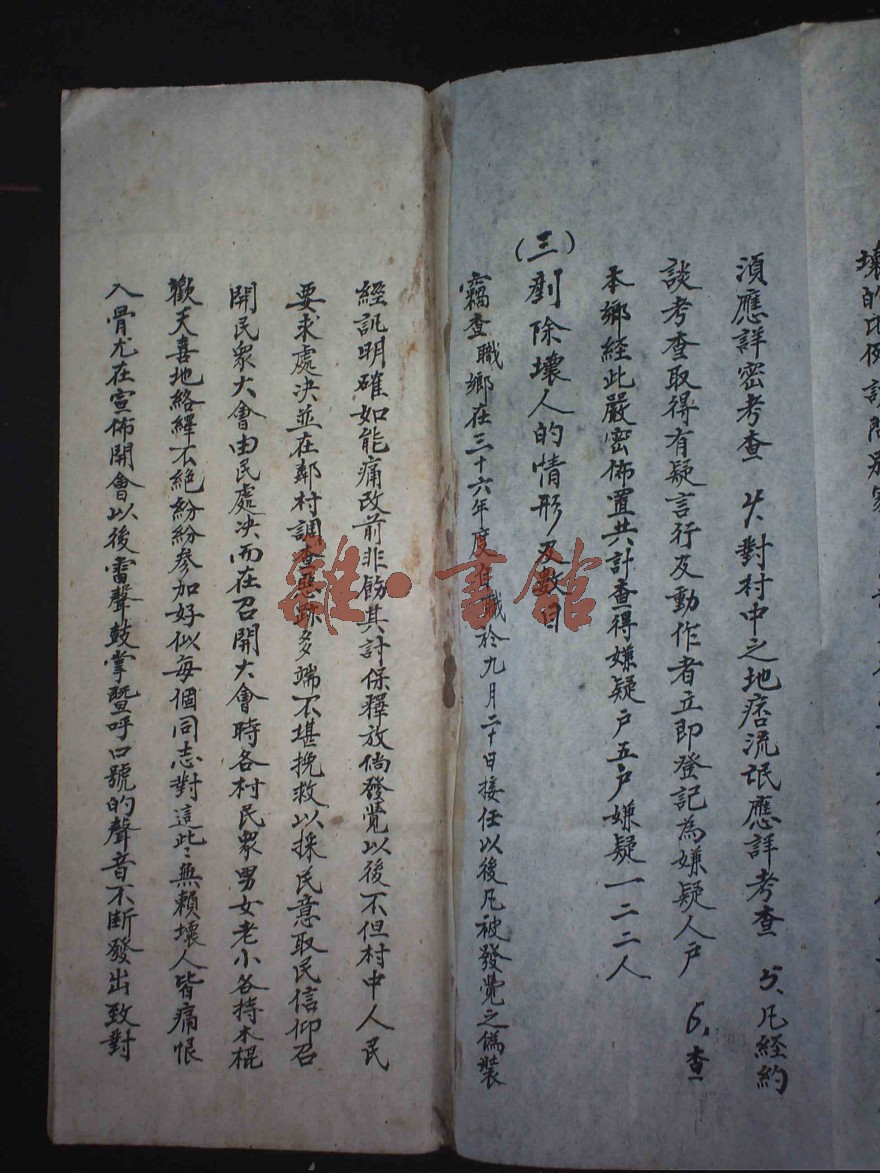 壞的比例訪問居家
須應詳密考查 4、對村中之地痞流氓應詳考查 5、凡經約
談考查取得有疑言行及動作者立即登記為嫌疑人戶 6、查
本鄉經此嚴密佈置共計查得嫌疑戶五戶嫌疑一二二人
(三)剷除壞人的情形及數目
竊查職鄉在三十六年度自職於九月二十日接任以後凡被發覺之偽裝
經訊明確如能痛改前非飭其討保釋放倘發覺以後不但村中人民
要求處決並在鄰村調查惡跡多端不堪挽救以採民意取民信仰召
開民眾大會由民處决而在召開大會時各村民眾男女老小各持木棍
歡天喜地絡繹不絕紛紛參加好似每個同志對這些無賴壞人皆痛恨
入骨尤在宣佈開會以後雷聲鼓掌暨呼口號的聲音不斷發出致對
雜·書館